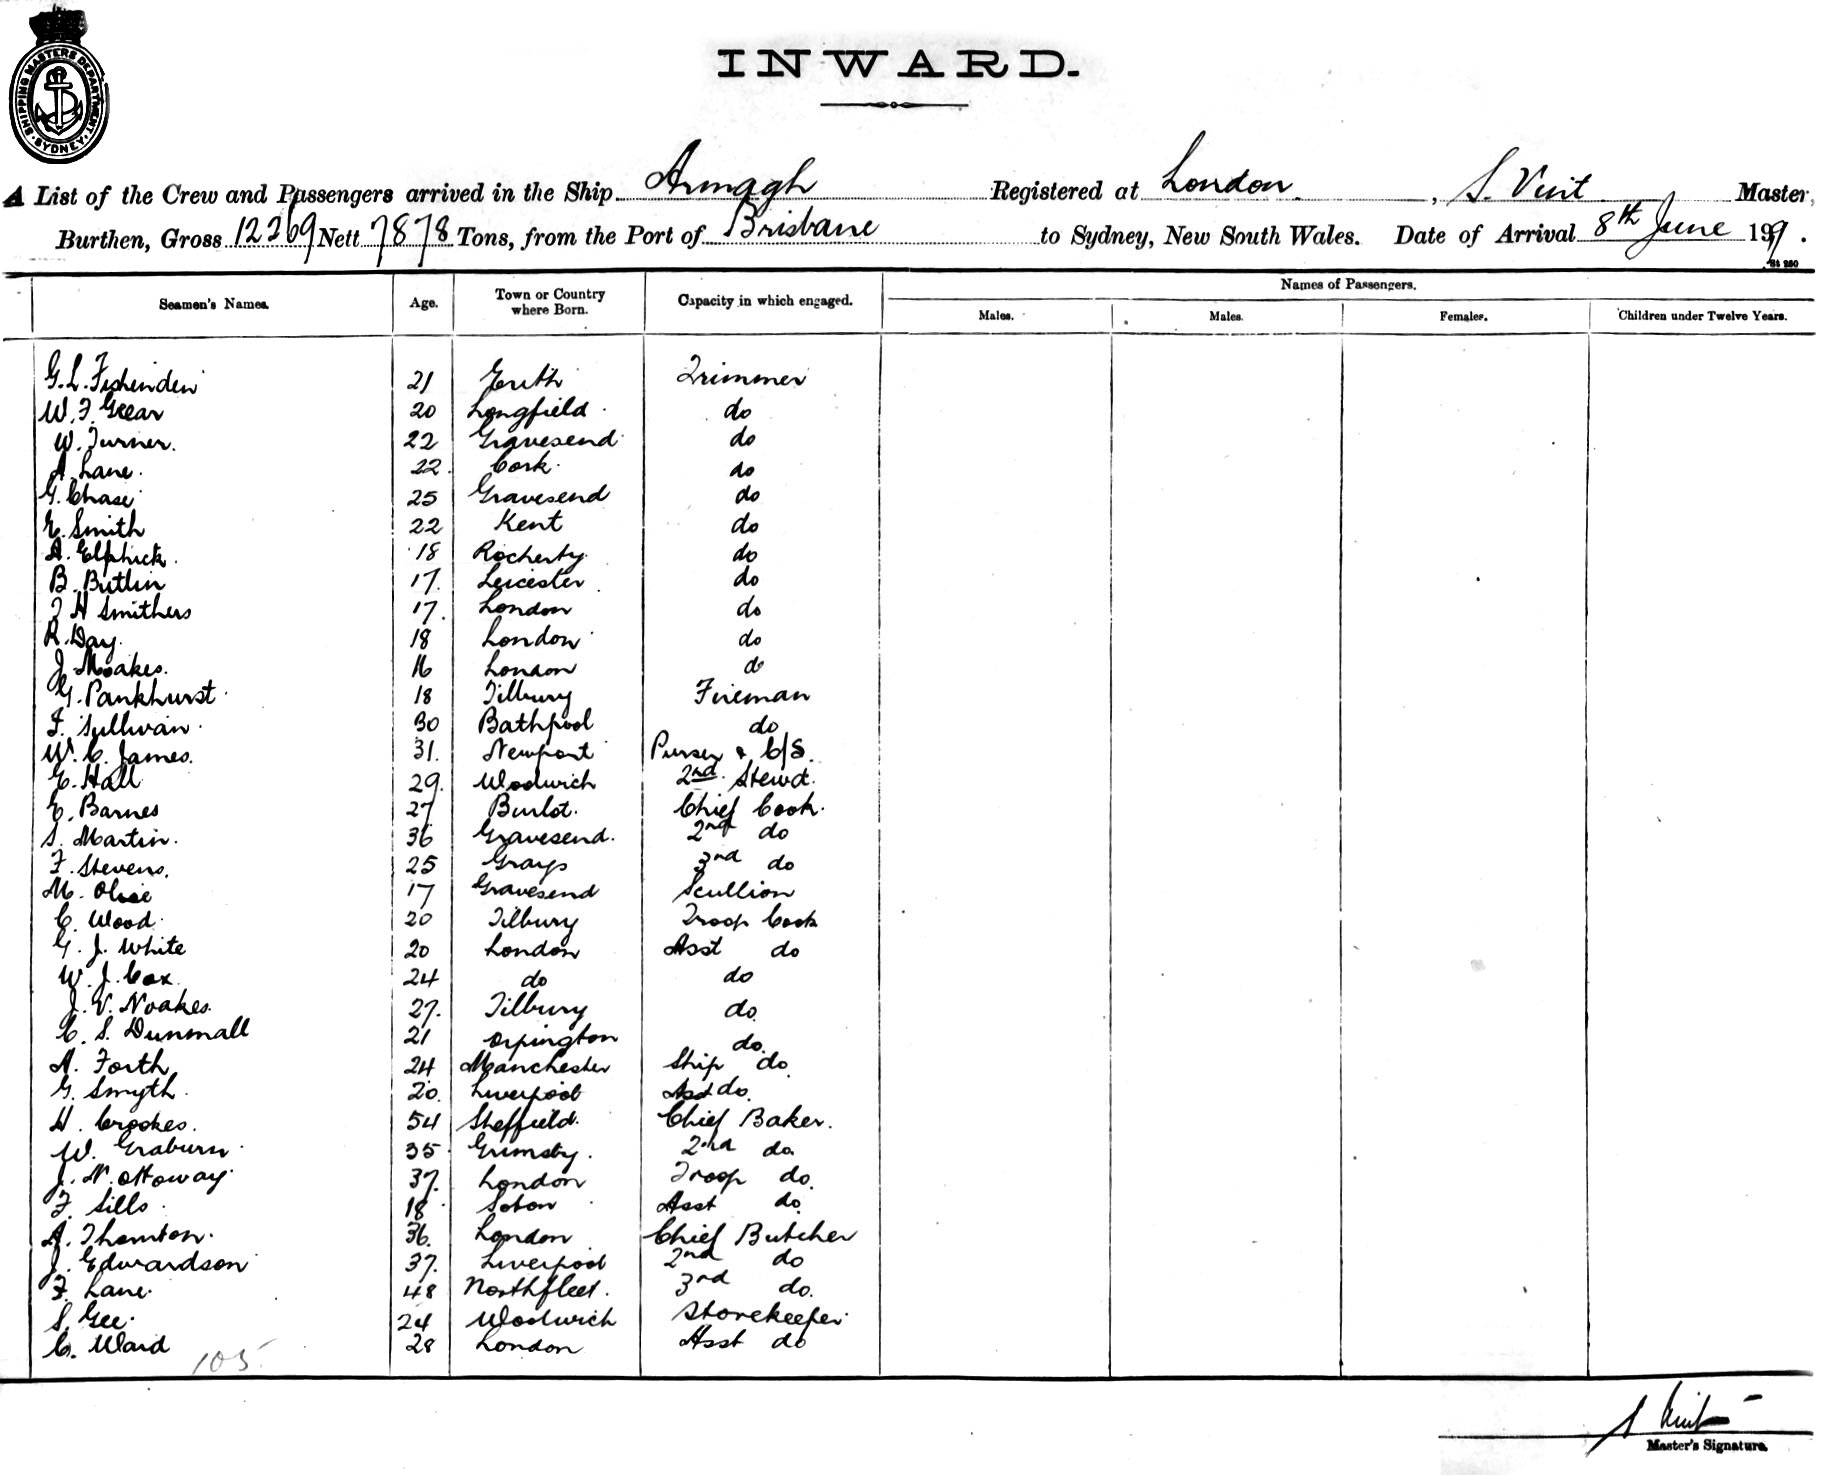 SHIPPING MASTERS DEPARTMENT SYDNEY
INWARD.
A List of the Crew and Passengers arrived in the Ship Armagh Registered at London, S. Master,
Burthen, Gross 12269 Nett 7878 Tons, from the Port of Brisbane to Sydney, New South Wales. Date of Arrival 8th June 19
Names of Passengers.
Seamen's Names. Age. Town or Country where Born. Capacity in which engaged. Males. Males. Females. Children under Twelve Years.
G. L. Fishenden 21 Erith Trimmer
W. F. Geear 20 Longfield do
W. Turner. 22 Gravesend do
A. Lane. 22 Cork do
G. Chase 25 Gravesend do
E. Smith 22 Kent do
A. Elphick. 18 do
B. Butlin 17. Leicester do
F H Smithers 17. London do
R. Day. 18 London do
J. Noakes. 16 London do
G. Pankhurst 18 Tilbury Fireman
F. Sullivan 30 Bathpool do
W. C. James. 31. Newport Purser & C/S.
E. Hall 29. Woolwich 2nd Stewd.
E. Barnes 27 Chief Cook.
S. Martin. 36 Gravesend. 2nd do
F. Stevens. 25 Grays 3rd do
M. 17 Gravesend Scullion
C. Wood 20 Tilbury Troop Cook
G. J. White 20 London Asst do
W. J. Cox. 24 do do
J. V. Noakes. 27. Tilbury do.
C. S. Dunmall 21 Orpington do.
A. Forth 24 Manchester Ship do
G. Smyth. 20. Liverpool Asst do.
H. Crookes. 54 Sheffield. Chief Baker.
W. Graburn 35 Grimsby. 2nd do.
J. N. Ottoway 37. London Troop do.
F. Sills 18 Soton Asst do
A. Thornton. 36. London Chief Butcher
J. Edwardson 37. Liverpool 2nd do
F. Lane. 48 Northfleet. 3rd do.
S. Gee. 24 Woolwich Storekeeper
C. Ward 28 London Asst do
105
Master's Signature.